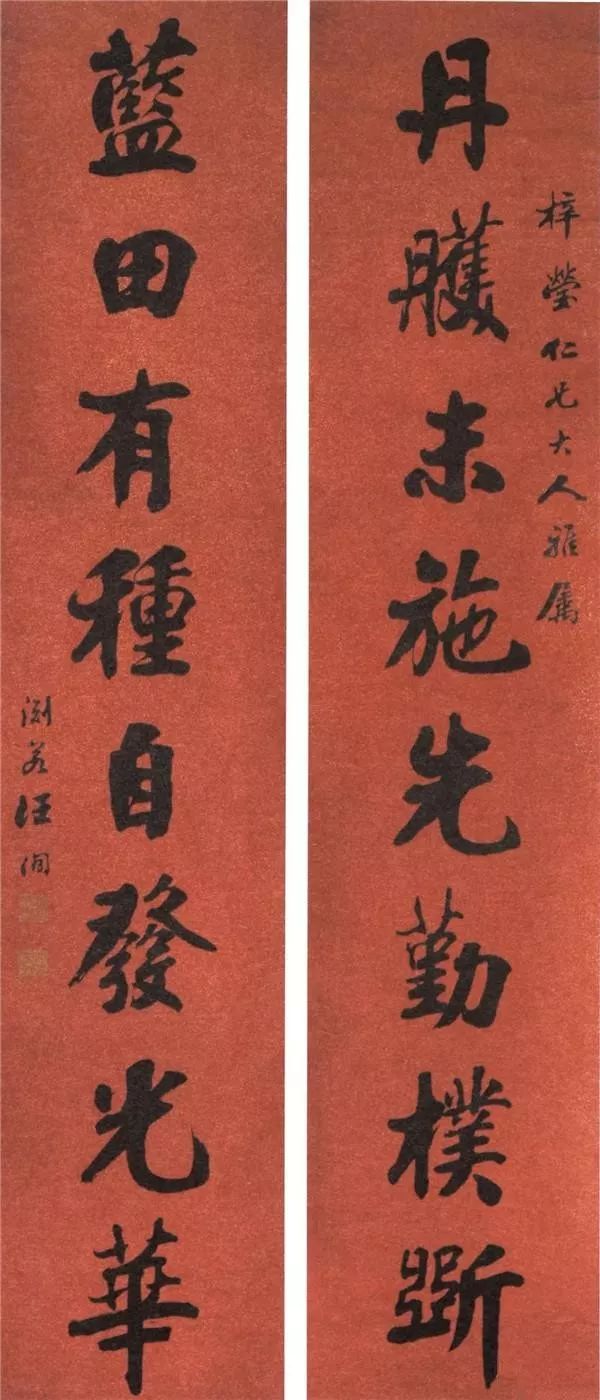 梓瑩仁兄大人雅属
丹雘未施先勤樸斲
藍田有種自發光華
淵若汪洵